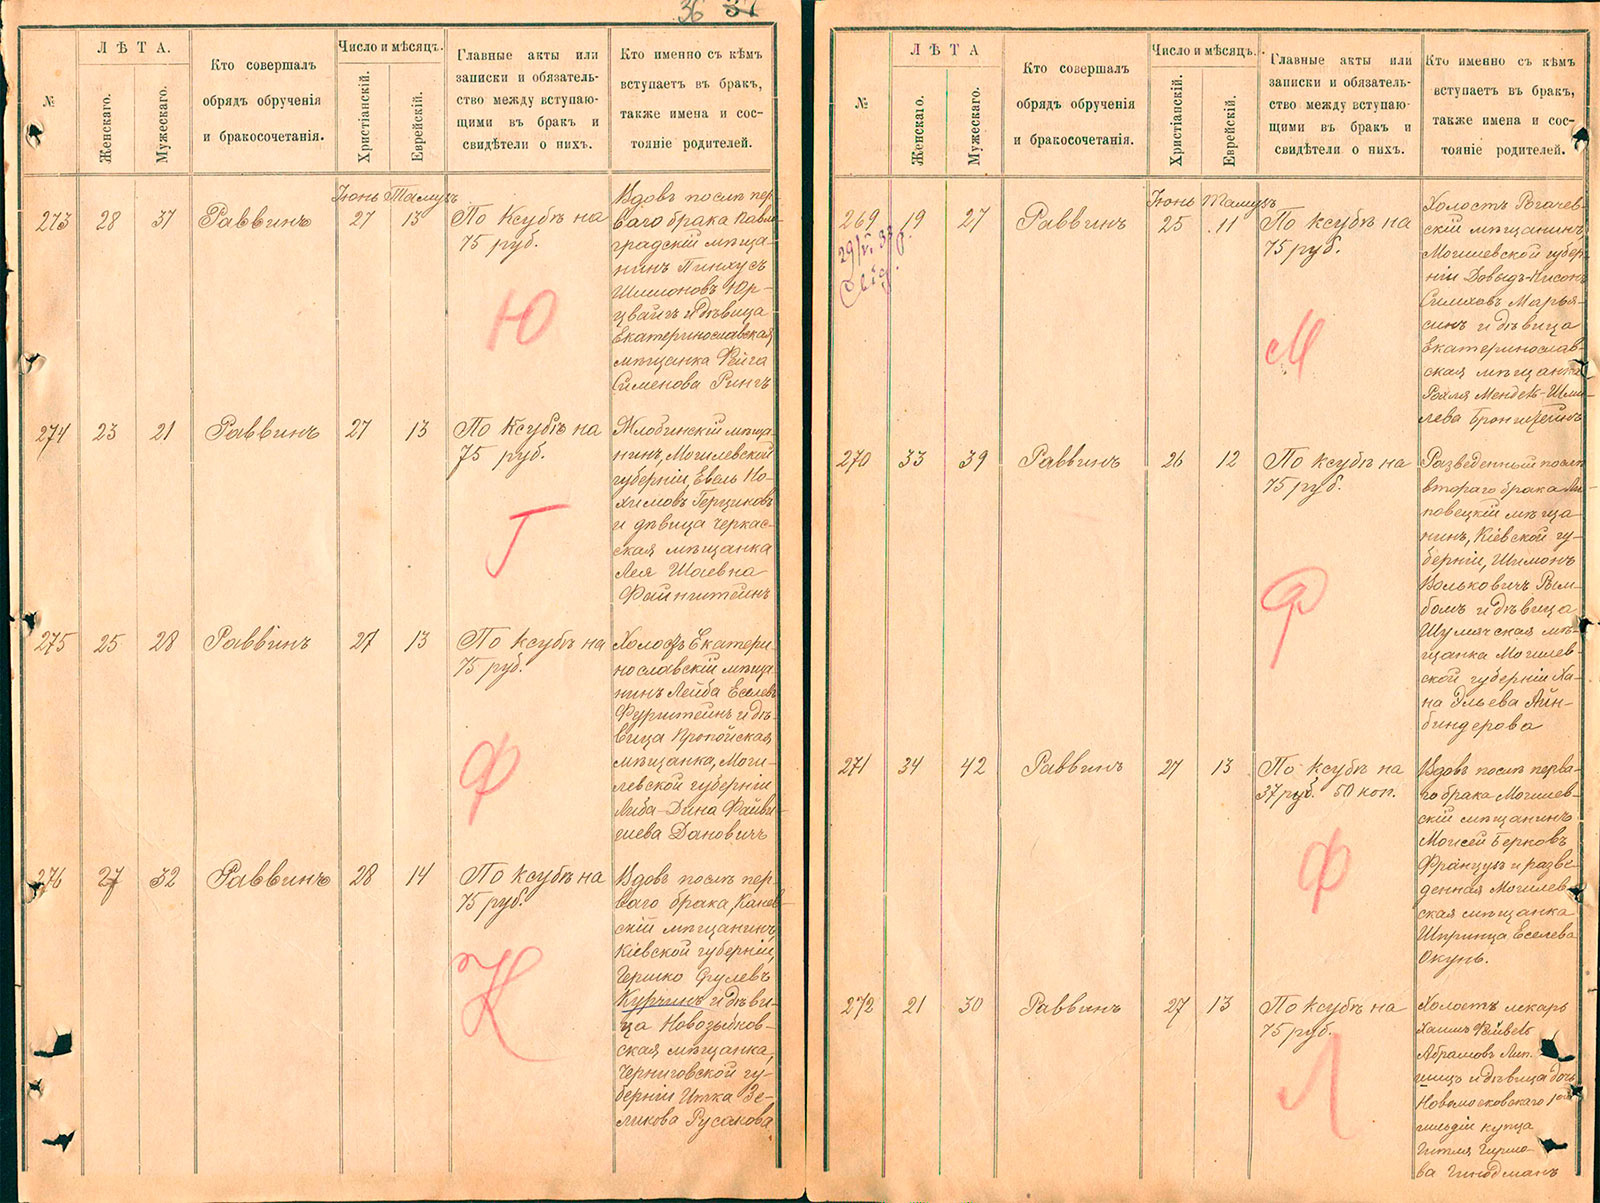 36 37
№
ЛѢТА.
Женскаго.
Мужескаго.
Кто совершалъ
обрядъ обрученія
и бракосочетанія.
Число и мѣсяцъ.
Христіанскій.
Еврейскій.
Главные акты или
записки и обязатель-
ство между вступаю-
щими въ бракъ и
свидѣтели о нихъ.
Кто именно съ кѣмъ
вступаетъ въ бракъ,
также имена и сос-
тояніе родителей.
Іюнь Тамузъ
273 28 37 Раввинъ 27 13
По ксубѣ на
75 руб.
Ю
Вдовъ послѣ пер-
ваго брака Павло-
градскій мѣща-
нинъ Пинхусъ
Шлиомовъ Юр-
цвайгъ и дѣвица
Екатеринославская
мѣщанка Фейга
Сименова Рингъ
274 23 21 Раввинъ 27 13
По ксубѣ на
75 руб.
Г
Жлобинскій мѣща-
нинъ, Могилевской
губерніи, Евель Но-
химовъ Герциковъ
и дѣвица Черкас-
ская мѣщанка
Лея Шаевна
Файнштейнъ
275 25 28 Раввинъ 27 13
По ксубѣ на
75 руб.
Ф
Холостъ Екатери-
нославскій мѣща-
нинъ Лейба Еселевъ
Фурштейнъ и дѣ-
вица Пропойская
мѣщанка, Моги-
левской губерніи
Либа-Дина Файви-
шева Дановичъ
276 27 32 Раввинъ 28 14
По ксубѣ на
75 руб.
К
Вдовъ послѣ пер-
ваго брака, Канев-
скій мѣщанинъ,
Кіевской губерніи,
Гершко Сrулевъ
Курчинъ и дѣви-
ца Новозыбков-
ская мѣщанка,
Черниговской гу-
берніи Итка Зе-
ликова Русакова
№
ЛѢТА
Женскаго.
Мужескаго.
Кто совершалъ
обрядъ обрученія
и бракосочетанія.
Число и мѣсяцъ.
Христіанскій.
Еврейскій.
Главные акты или
записки и обязатель-
ство между вступаю-
щими въ бракъ и
свидѣтели о нихъ.
Кто именно съ кѣмъ
вступаетъ въ бракъ,
также имена и сос-
тояніе родителей.
Іюнь Тамузъ
269 19 27 Раввинъ 25 11
По ксубѣ на
75 руб.
М
Холостъ Рогачев-
скій мѣщанинъ
Могилевской губер-
ніи Довыдъ-Нисонъ
Симховъ Марья-
синъ и дѣвица
Екатеринослав-
ская мѣщанка
Рохля Мендель-Шми-
лева Бронштейнъ
270 33 39 Раввинъ 26 12
По ксубѣ на
75 руб.
Ф
Разведенный послѣ
втораго брака Ли-
повецкій мѣща-
нинъ, Кіевской гу-
берніи, Шимонъ
Вольковичъ
и дѣвица
Шумячская мѣ-
щанка Могилев-
ской губерніи Ха-
на Эльева Айн-
биндерова
271 34 42 Раввинъ 27 13
По ксубѣ на
37 руб. 50 коп.
Ф
Вдовъ послѣ перва-
го брака Могилев-
скій мѣщанинъ
Моисей Берковъ
Французъ и разве-
денная Могилев-
ская мѣщанка
Шпринца Еселева
Окунь.
272 21 30 Раввинъ 27 13
По ксубѣ на
75 руб.
Л
Холостъ лекарь
Хаимъ Файвель
Абрамовъ Лип-
шицъ и дѣвица дочь
Новомосковскаго 1ой
гильдіи купца
Гитля Гиршо-
ва Гиндманъ